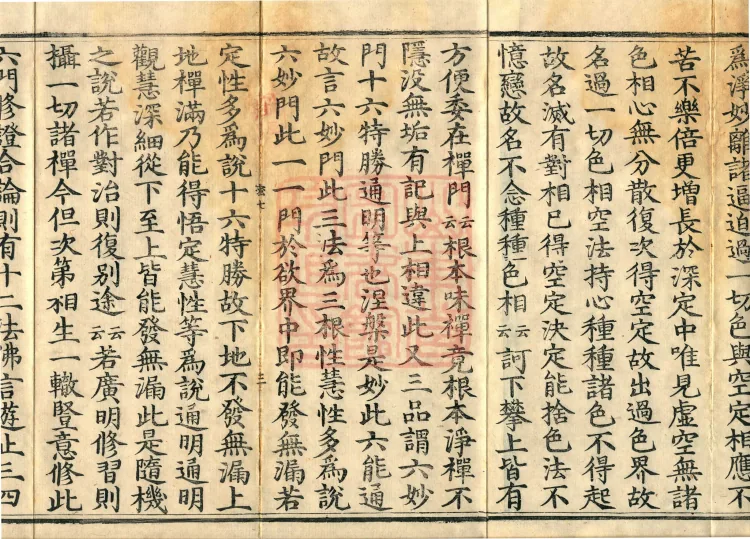 爲淨妙離諸逼迫過一切色與空定相應不
苦不樂倍更增長於深定中唯見虛空無諸
色相心無分散復次得空定故出過色界故
名過一切色相空法持心種種諸色不得起
故名滅有對相已得空定決定能捨色法不
憶戀故名不念種種色相云云訶下攀上皆有
方便委在禪門云云根本味禪竟根本淨禪不
隱没無垢有記與上相違此又三品謂六妙
門十六特勝通明等也涅槃是妙此六能通
故言六妙門此三法爲三根性慧性多爲說
六妙門此一一門於欲界中即能發無漏若
定性多爲說十六特勝故下地不發無漏上
地禪滿乃能得悟定慧性等爲說通明通明
觀慧深細從下至上皆能發無漏此是隨機
之說若作對治則復別途云云若廣明修習則
攝一切諸禪今但次第相生一轍豎意修此
六門修證合論則有十二法佛言遊止三四